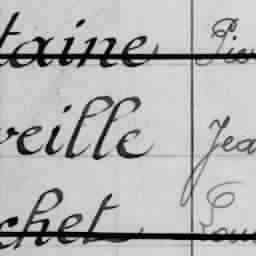 taine Pie
veille Jea
chet Lou